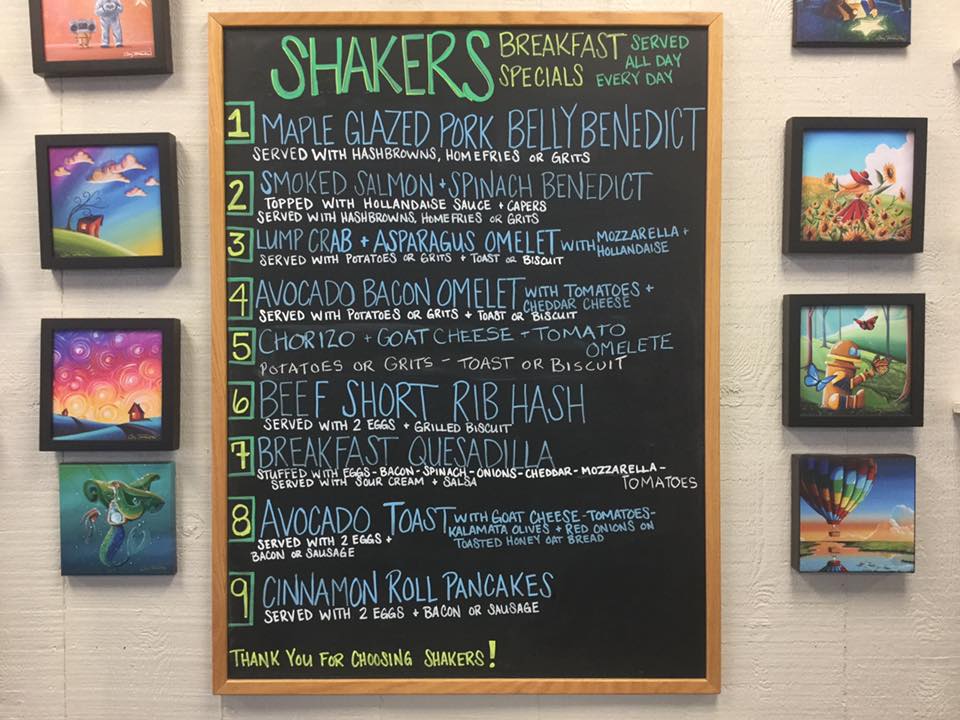 SHAKERS BREAKFAST SPECIALS SERVED ALL DAY EVERY DAY
1 MAPLE GLAZED PORK BELLY BENEDICT
SERVED WITH HASHBROWNS, HOMEFRIES OR GRITS
2 SMOKED SALMON + SPINACH BENEDICT
TOPPED WITH HOLLANDAISE SAUCE + CAPERS
SERVED WITH HASHBROWNS, HOMEFRIES OR GRITS
3 LUMP CRAB + ASPARAGUS OMELET WITH MOZZARELLA + HOLLANDAISE
SERVED WITH POTATOES OR GRITS + TOAST OR BISCUIT
4 AVOCADO BACON OMELET WITH TOMATOES + CHEDDAR CHEESE
SERVED WITH POTATOES OR GRITS + TOAST OR BISCUIT
5 CHORIZO + GOAT CHEESE - TOMATO OMELETE
POTATOES OR GRITS - TOAST OR BISCUIT
6 BEEF SHORT RIB HASH
SERVED WITH 2 EGGS + GRILLED BISCUIT
7 BREAKFAST QUESADILLA
STUFFED WITH EGGS - BACON - SPINACH - ONIONS - CHEDDAR - MOZZARELLA - TOMATOES
SERVED WITH SOUR CREAM + SALSA
8 AVOCADO TOAST WITH GOAT CHEESE - TOMATOES - KALAMATA OLIVES + RED ONIONS ON TOASTED HONEY OAT BREAD
SERVED WITH 2 EGGS +
BACON OR SAUSAGE
9 CINNAMON ROLL PANCAKES
SERVED WITH 2 EGGS + BACON OR SAUSAGE
THANK YOU FOR CHOOSING SHAKERS!